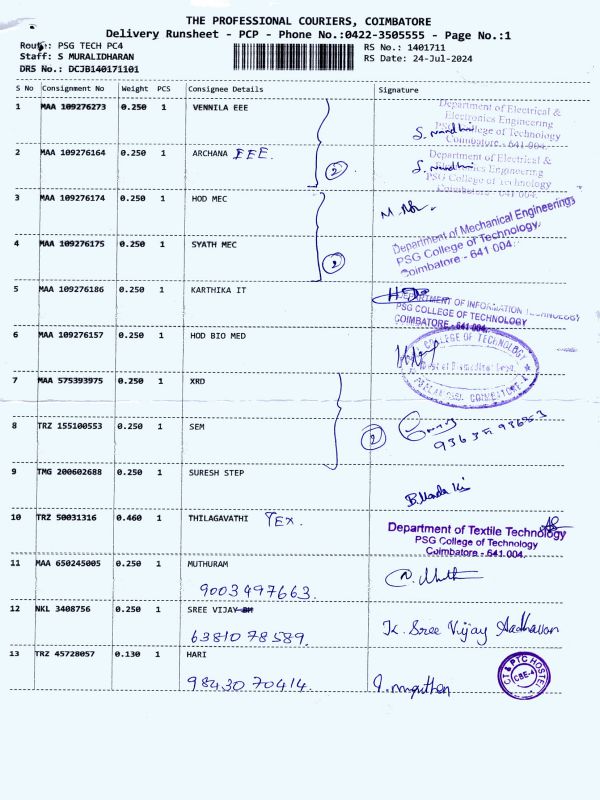 THE PROFESSIONAL COURIERS, COIMBATORE
Delivery Runsheet - PCP - Phone No.:0422-3505555 - Page No.:1
Route: PSG TECH PC4
RS No.: 1401711
Staff: S MURALIDHARAN
RS Date: 24-Jul-2024
DRS No.: DCJB140171101
S No Consignment No Weight PCS Consignee Details Signature
1 MAA 109276273 0.250 1 VENNILA EEE
Department of Electrical &
Electronics Engineering
PSG College of Technology
Coimbatore - 641 004.
2 MAA 109276164 0.250 1 ARCHANA EEE.
2
Department of Electrical &
Electronics Engineering
PSG College of Technology
Coimbatore - 641 004.
3 MAA 109276174 0.250 1 HOD MEC
4 MAA 109276175 0.250 1 SYATH MEC
2
Department of Mechanical Engineerings
PSG College of Technology.
Coimbatore - 641 004.
5 MAA 109276186 0.250 1 KARTHIKA IT
DEPARTMENT OF INFORMATION TECHNOLOGY
PSG COLLEGE OF TECHNOLOGY
COIMBATORE - 641 004.
6 MAA 109276157 0.250 1 HOD BIO MED
COLLEGE OF TECHNOLOGY
COIMBATORE-4
7 MAA 575393975 0.250 1 XRD
8 TRZ 155100553 0.250 1 SEM
2
9 TMG 200602688 0.250 1 SURESH STEP
10 TRZ 50031316 0.460 1 THILAGAVATHI TEX.
Department of Textile Technology
PSG College of Technology
Coimbatore - 641 004.
11 MAA 650245005 0.250 1 MUTHURAM
9003497663.
12 NKL 3408756 0.250 1 SREE VIJAY
6381078589.
K. Sree Vijay Aadhavan
13 TRZ 45728057 0.130 1 HARI
9843070414.
CT & PTC HOSTEL
CBE-4